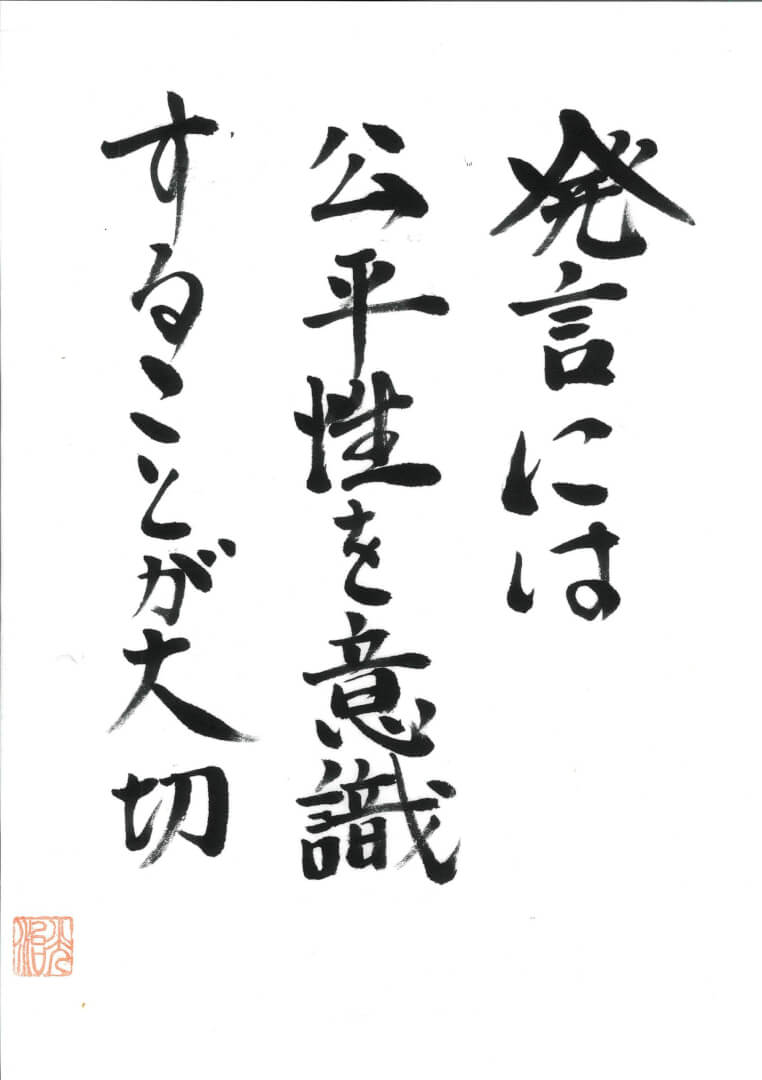 発言には
公平性を意識
することが大切